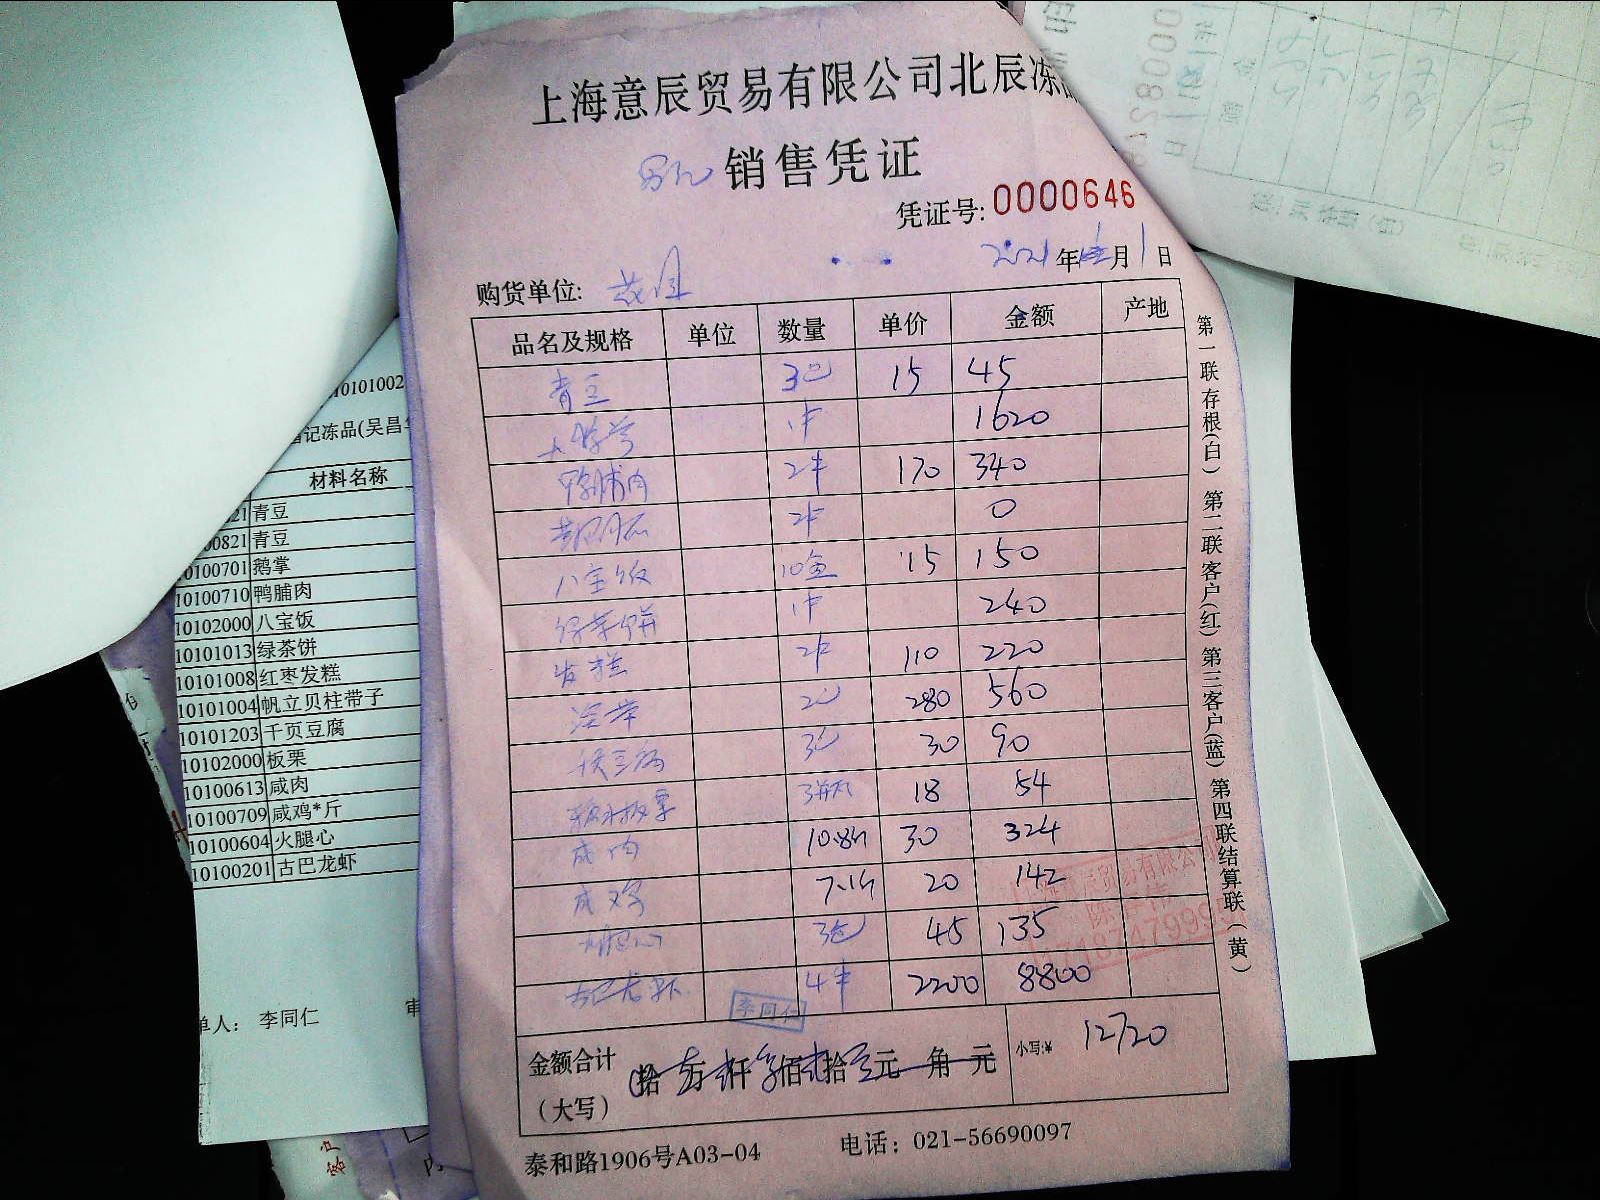 上海意辰贸易有限公司北辰冻
销售凭证
凭证号: 0000646
2021年 月1日
购货单位:
品名及规格 单位 数量 单价 金额 产地
青豆 3包 15 45
1件 1620
鸭脯肉 2件 170 340
2件 0
八宝饭 10盒 15 150
绿茶饼 1件 240
发糕 2件 110 220
2包 280 560
3包 30 90
板栗 3 18 54
咸肉 10.8斤 30 324
咸鸡 7.1斤 20 142
火腿心 3包 45 135
古巴龙虾 4件 2200 8800
李同仁
金额合计
(大写)
拾 万 仟 佰 拾 元 角 元
小写:¥ 12720
泰和路1906号A03-04 电话: 021-56690097
第一联存根(白) 第二联客户(红) 第三客户(蓝) 第四联结算联(黄)
10101002
记冻品(吴昌
材料名称
21 青豆
00821 青豆
10100701 鹅掌
10100710 鸭脯肉
10102000 八宝饭
10101013 绿茶饼
10101008 红枣发糕
10101004 帆立贝柱带子
10101203 千页豆腐
10102000 板栗
10100613 咸肉
10100709 咸鸡*斤
10100604 火腿心
10100201 古巴龙虾
单人: 李同仁
审